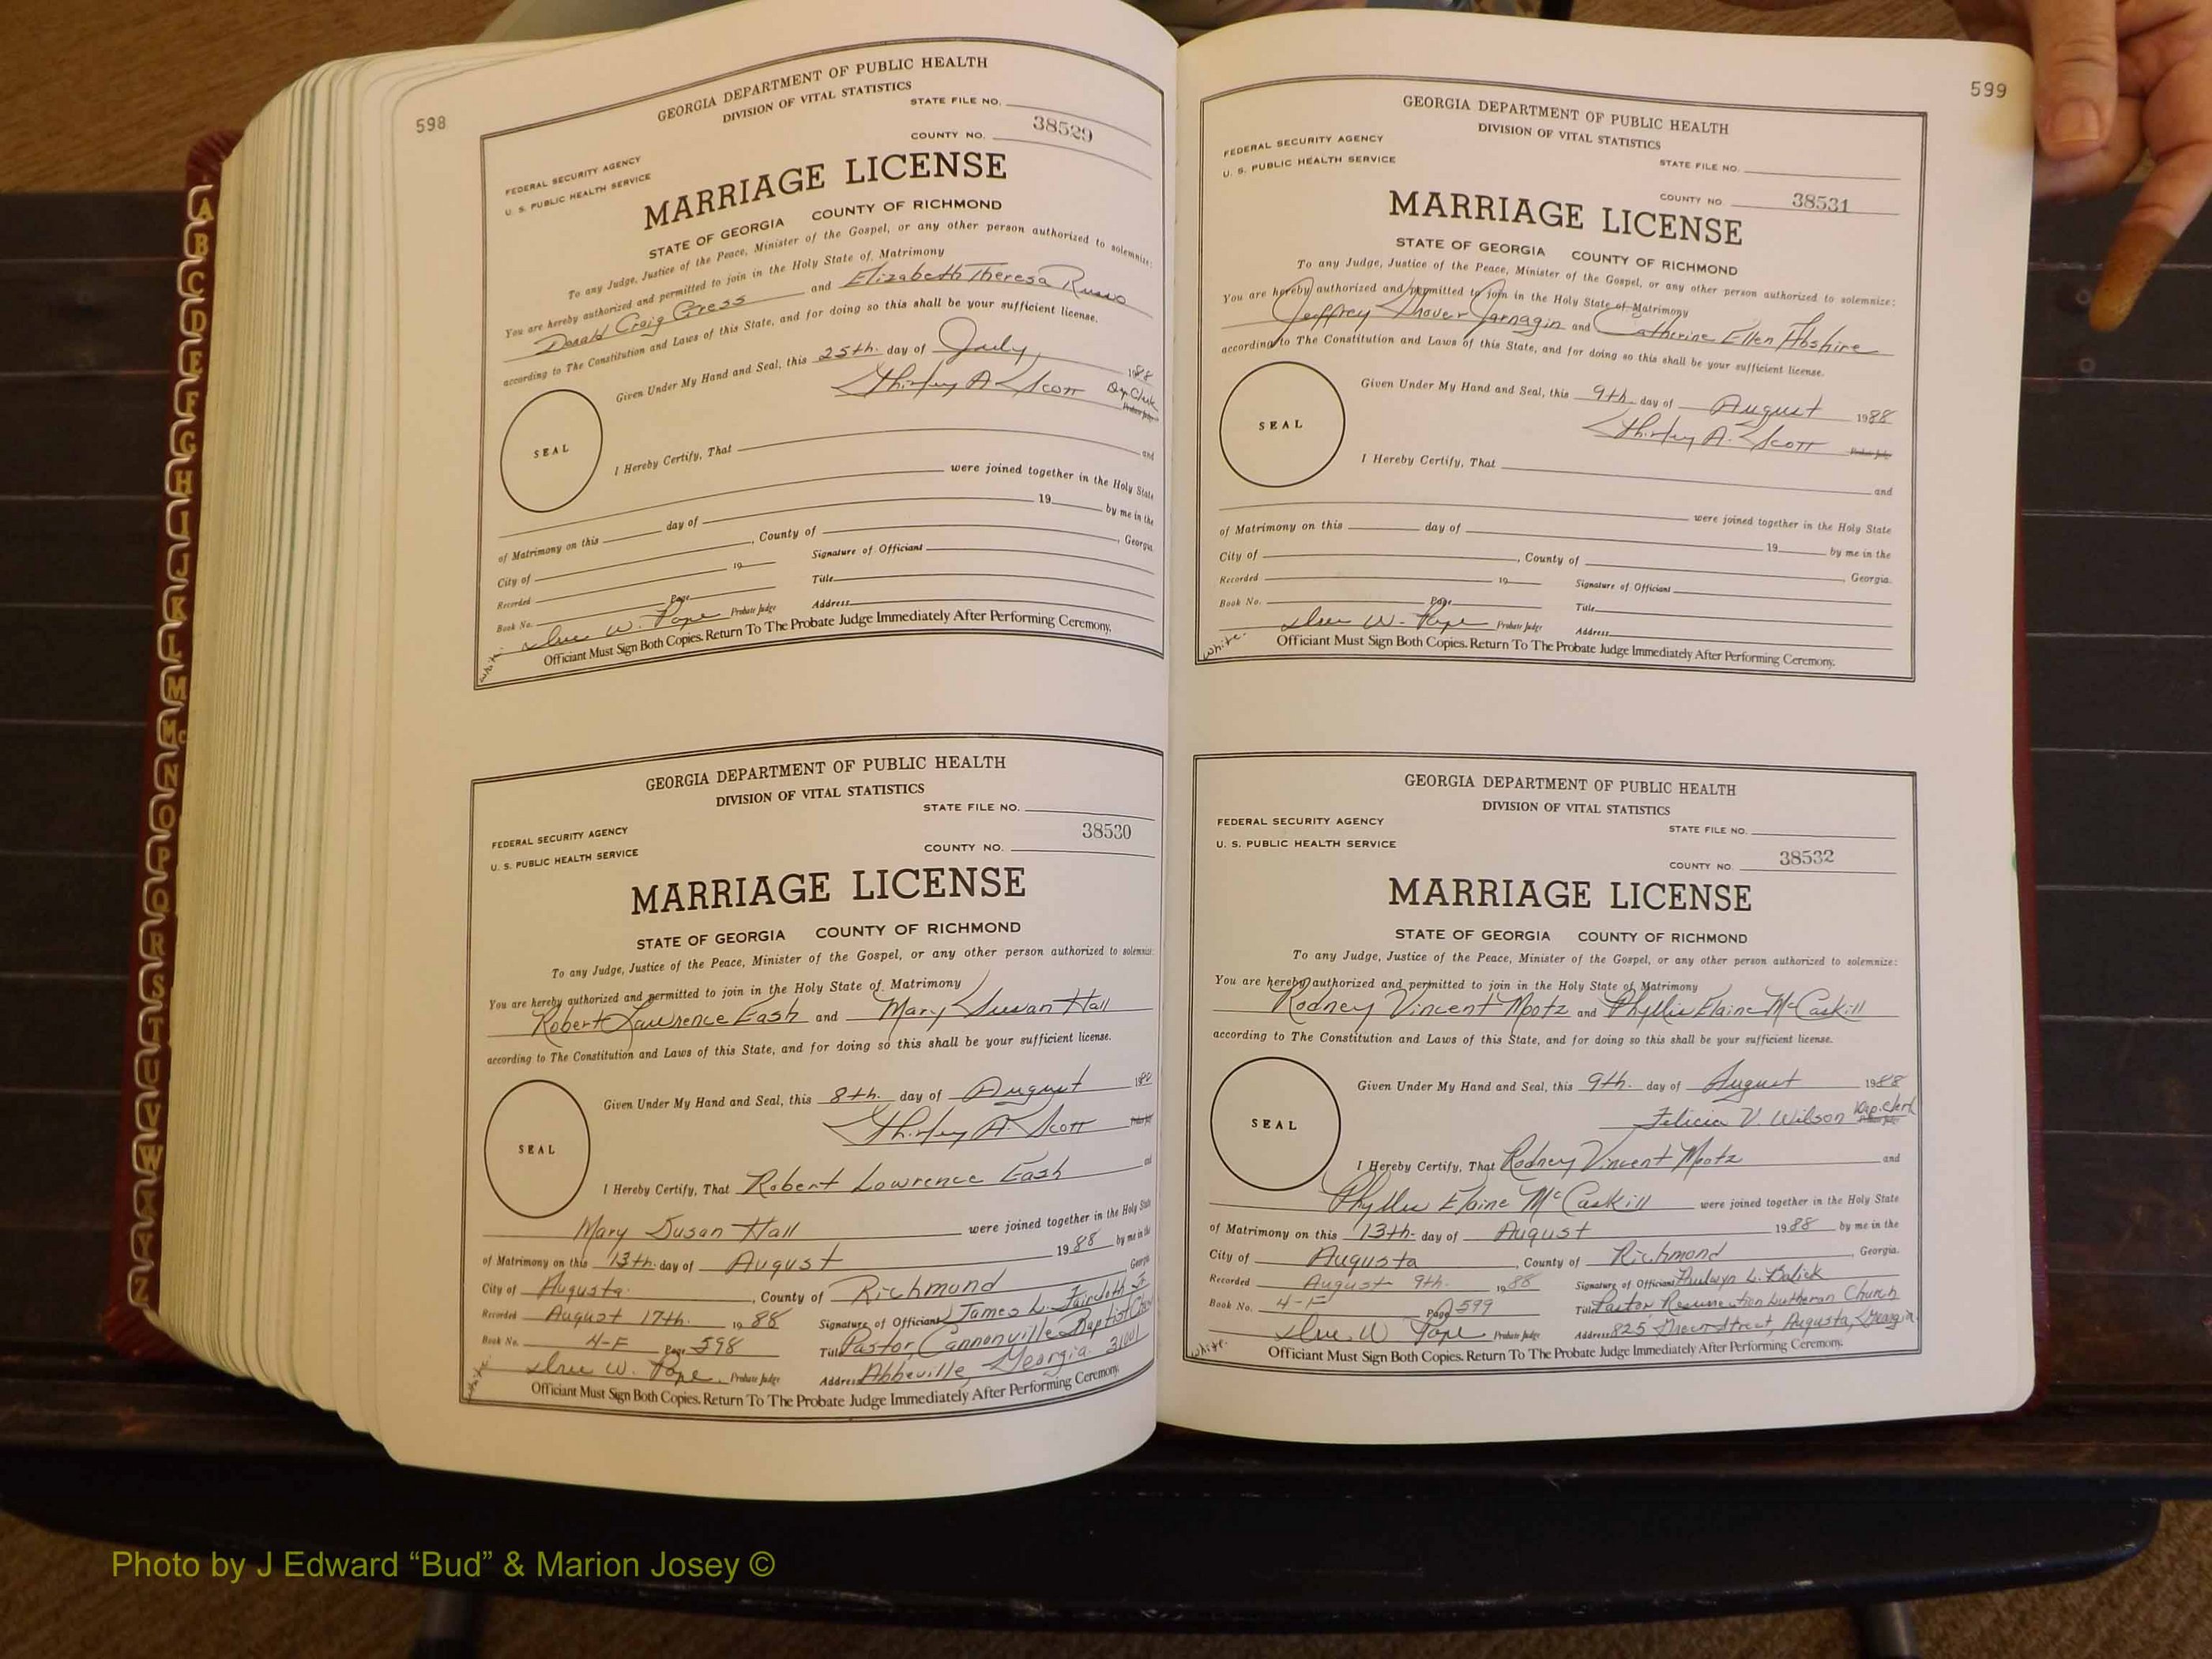 598
GEORGIA DEPARTMENT OF PUBLIC HEALTH
DIVISION OF VITAL STATISTICS
STATE FILE NO.
38529
COUNTY NO.
FEDERAL SECURITY AGENCY
U. S. PUBLIC HEALTH SERVICE
MARRIAGE LICENSE
STATE OF GEORGIA COUNTY OF RICHMOND
To any Judge, Justice of the Peace, Minister of the Gospel, or any other person authorized to solemnize:
You are hereby authorized and permitted to join in the Holy State of Matrimony
Donald Craig Gress and Elizabeth Theresa Russo
according to The Constitution and Laws of this State, and for doing so this shall be your sufficient license.
Given Under My Hand and Seal, this 25th. day of July, 1988
Shirley A. Scott Dep. Clerk
SEAL
I Hereby Certify, That and
were joined together in the Holy State
of Matrimony on this day of 19 by me in the
City of , County of , Georgia.
Recorded 19 Signature of Officiant
Book No. Page Title
Ilue W. Pope Probate Judge Address
White
Officiant Must Sign Both Copies. Return To The Probate Judge Immediately After Performing Ceremony.
GEORGIA DEPARTMENT OF PUBLIC HEALTH
DIVISION OF VITAL STATISTICS
STATE FILE NO.
38530
COUNTY NO.
FEDERAL SECURITY AGENCY
U. S. PUBLIC HEALTH SERVICE
MARRIAGE LICENSE
STATE OF GEORGIA COUNTY OF RICHMOND
To any Judge, Justice of the Peace, Minister of the Gospel, or any other person authorized to solemnize:
You are hereby authorized and permitted to join in the Holy State of Matrimony
Robert Lawrence Eash and Mary Susan Hall
according to The Constitution and Laws of this State, and for doing so this shall be your sufficient license.
Given Under My Hand and Seal, this 8th. day of August 1988
Shirley A. Scott
SEAL
I Hereby Certify, That Robert Lowrence Eash and
Mary Susan Hall were joined together in the Holy State
of Matrimony on this 13th. day of August 1988 by me in the
City of Augusta , County of Richmond Georgia
Recorded August 17th. 1988 Signature of Officiant James L. Faircloth Jr
Book No. 4-F Page 598 Title Pastor, Cannonville Baptist
Ilue W. Pope Probate Judge Address Abbeville, Georgia. 31001
White
Officiant Must Sign Both Copies. Return To The Probate Judge Immediately After Performing Ceremony.
599
GEORGIA DEPARTMENT OF PUBLIC HEALTH
DIVISION OF VITAL STATISTICS
FEDERAL SECURITY AGENCY
U. S. PUBLIC HEALTH SERVICE
STATE FILE NO.
COUNTY NO. 38531
MARRIAGE LICENSE
STATE OF GEORGIA COUNTY OF RICHMOND
To any Judge, Justice of the Peace, Minister of the Gospel, or any other person authorized to solemnize:
You are hereby authorized and permitted to join in the Holy State of Matrimony
Jeffrey Shover Jarnagin and Catherine Ellen Abshire
according to The Constitution and Laws of this State, and for doing so this shall be your sufficient license.
Given Under My Hand and Seal, this 9th day of August 1988
Shirley A. Scott
SEAL
I Hereby Certify, That
and
were joined together in the Holy State
of Matrimony on this day of 19 by me in the
City of , County of , Georgia.
Recorded 19 Signature of Officiant
Book No. Page Title
Ilue W. Pope Probate Judge Address
White.
Officiant Must Sign Both Copies. Return To The Probate Judge Immediately After Performing Ceremony.
GEORGIA DEPARTMENT OF PUBLIC HEALTH
DIVISION OF VITAL STATISTICS
FEDERAL SECURITY AGENCY
U. S. PUBLIC HEALTH SERVICE
STATE FILE NO.
COUNTY NO. 38532
MARRIAGE LICENSE
STATE OF GEORGIA COUNTY OF RICHMOND
To any Judge, Justice of the Peace, Minister of the Gospel, or any other person authorized to solemnize:
You are hereby authorized and permitted to join in the Holy State of Matrimony
Rodney Vincent Mootz and Phyllis Elaine McCaskill
according to The Constitution and Laws of this State, and for doing so this shall be your sufficient license.
Given Under My Hand and Seal, this 9th. day of August 1988
Felicia V. Wilson Dep. Clerk
SEAL
I Hereby Certify, That Rodney Vincent Mootz and
Phyllis Elaine McCaskill were joined together in the Holy State
of Matrimony on this 13th. day of August 1988 by me in the
City of Augusta , County of Richmond , Georgia.
Recorded August 9th. 1988 Signature of Officiant L. Balick
Book No. 4-F Page 599 Title Pastor Resurrection Lutheran Church
Ilue W. Pope Probate Judge Address 825 Street, Augusta, Georgia
White.
Officiant Must Sign Both Copies. Return To The Probate Judge Immediately After Performing Ceremony.
A
B
C
D
E
F
G
H
I
J
K
L
M
Mc
N
O
P
Q
R
S
T
U
V
W
X
Y
Z
Photo by J Edward “Bud” & Marion Josey ©